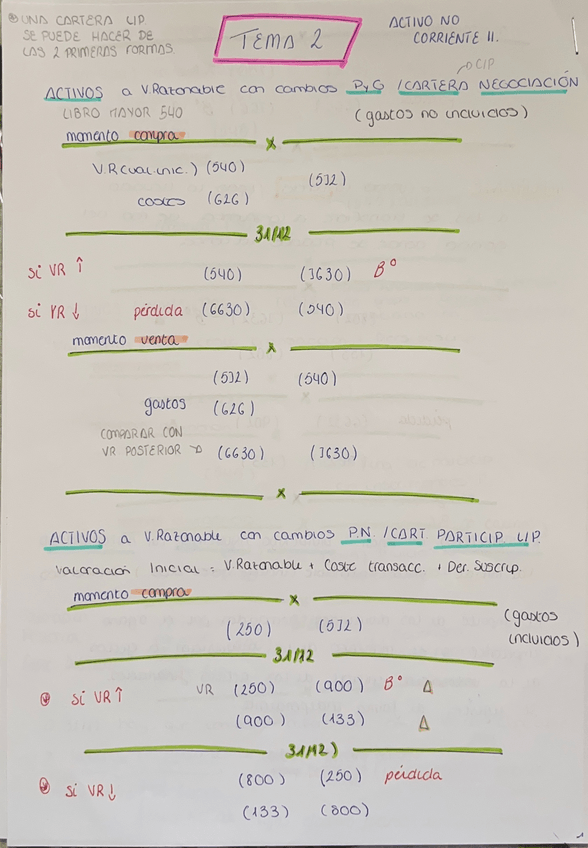 ⊛ UNA CARTERA L/P
SE PUEDE HACER DE
LAS 2 PRIMERAS FORMAS
TEMA 2
ACTIVO NO
CORRIENTE II.
→ C/P
ACTIVOS a V.Razonable con cambios PyG / CARTERA NEGOCIACIÓN
LIBRO MAYOR 540
(gastos no incluidos)
momento compra x
V.R (val.inic.) (540)
(572)
costes (626)
31/12
si VR ↑ (540) (7630) Bº
si VR ↓ pérdida (6630) (540)
momento venta x
(572) (540)
gastos (626)
COMPARAR CON
VR POSTERIOR → (6630) (7630)
x
ACTIVOS a V.Razonable con cambios P.N. / CART. PARTICIP. L/P.
Valoración Inicial = V.Razonable + Coste transacc. + Der. Suscrip.
momento compra x
(gastos
incluidos)
(250) (572)
31/12
⊛ si VR ↑ VR (250) (900) Bº Δ
(900) (133) Δ
31/12)
⊛ si VR ↓ (800) (250) pérdida
(133) (800)
1